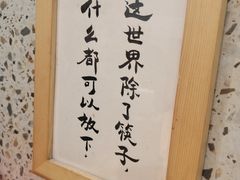 这世界除了筷子，
什么都可以放下．